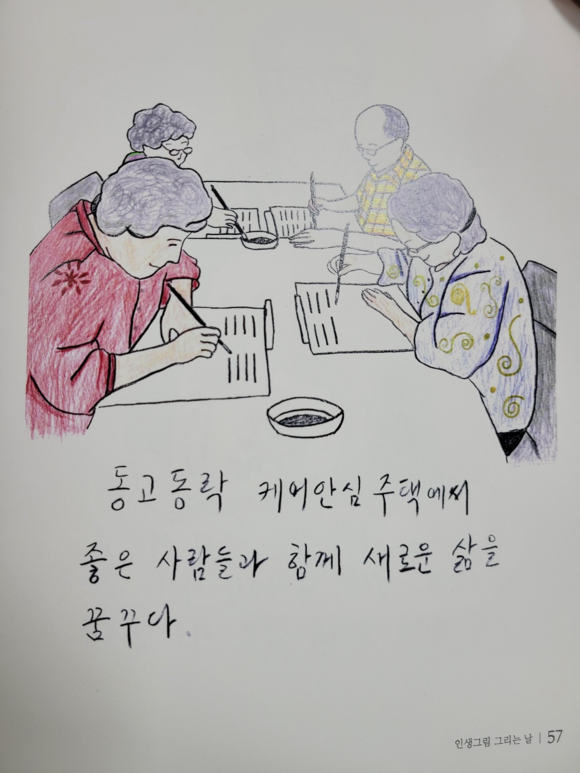 동고동락 케어안심 주택에서
좋은 사람들과 함께 새로운 삶을
꿈꾸다.
인생그림 그리는 날 | 57